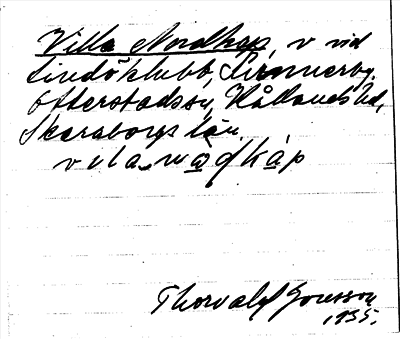 Villa Nordkap, v vid
Lindöklubb, Simmerby,
Otterstads sn, Kållands hd,
Skaraborgs län.
vila nodkap
Thorvald Jonsson
1935.